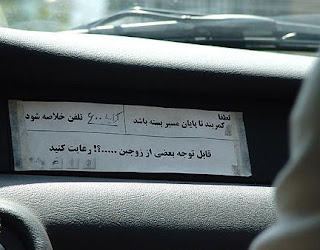 لطفا
کمربند تا پایان مسیر بسته باشد
تلفن خلاصه شود
قابل توجه بعضی از زوجین .....؟! رعایت کنید